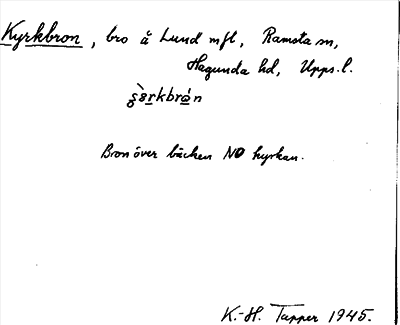 Kyrkbron, bro å Lund mfl, Ramsta sn,
Hagunda hd, Upps. l.
Bron över bäcken NO kyrkan.
K.-H. Tapper 1945.